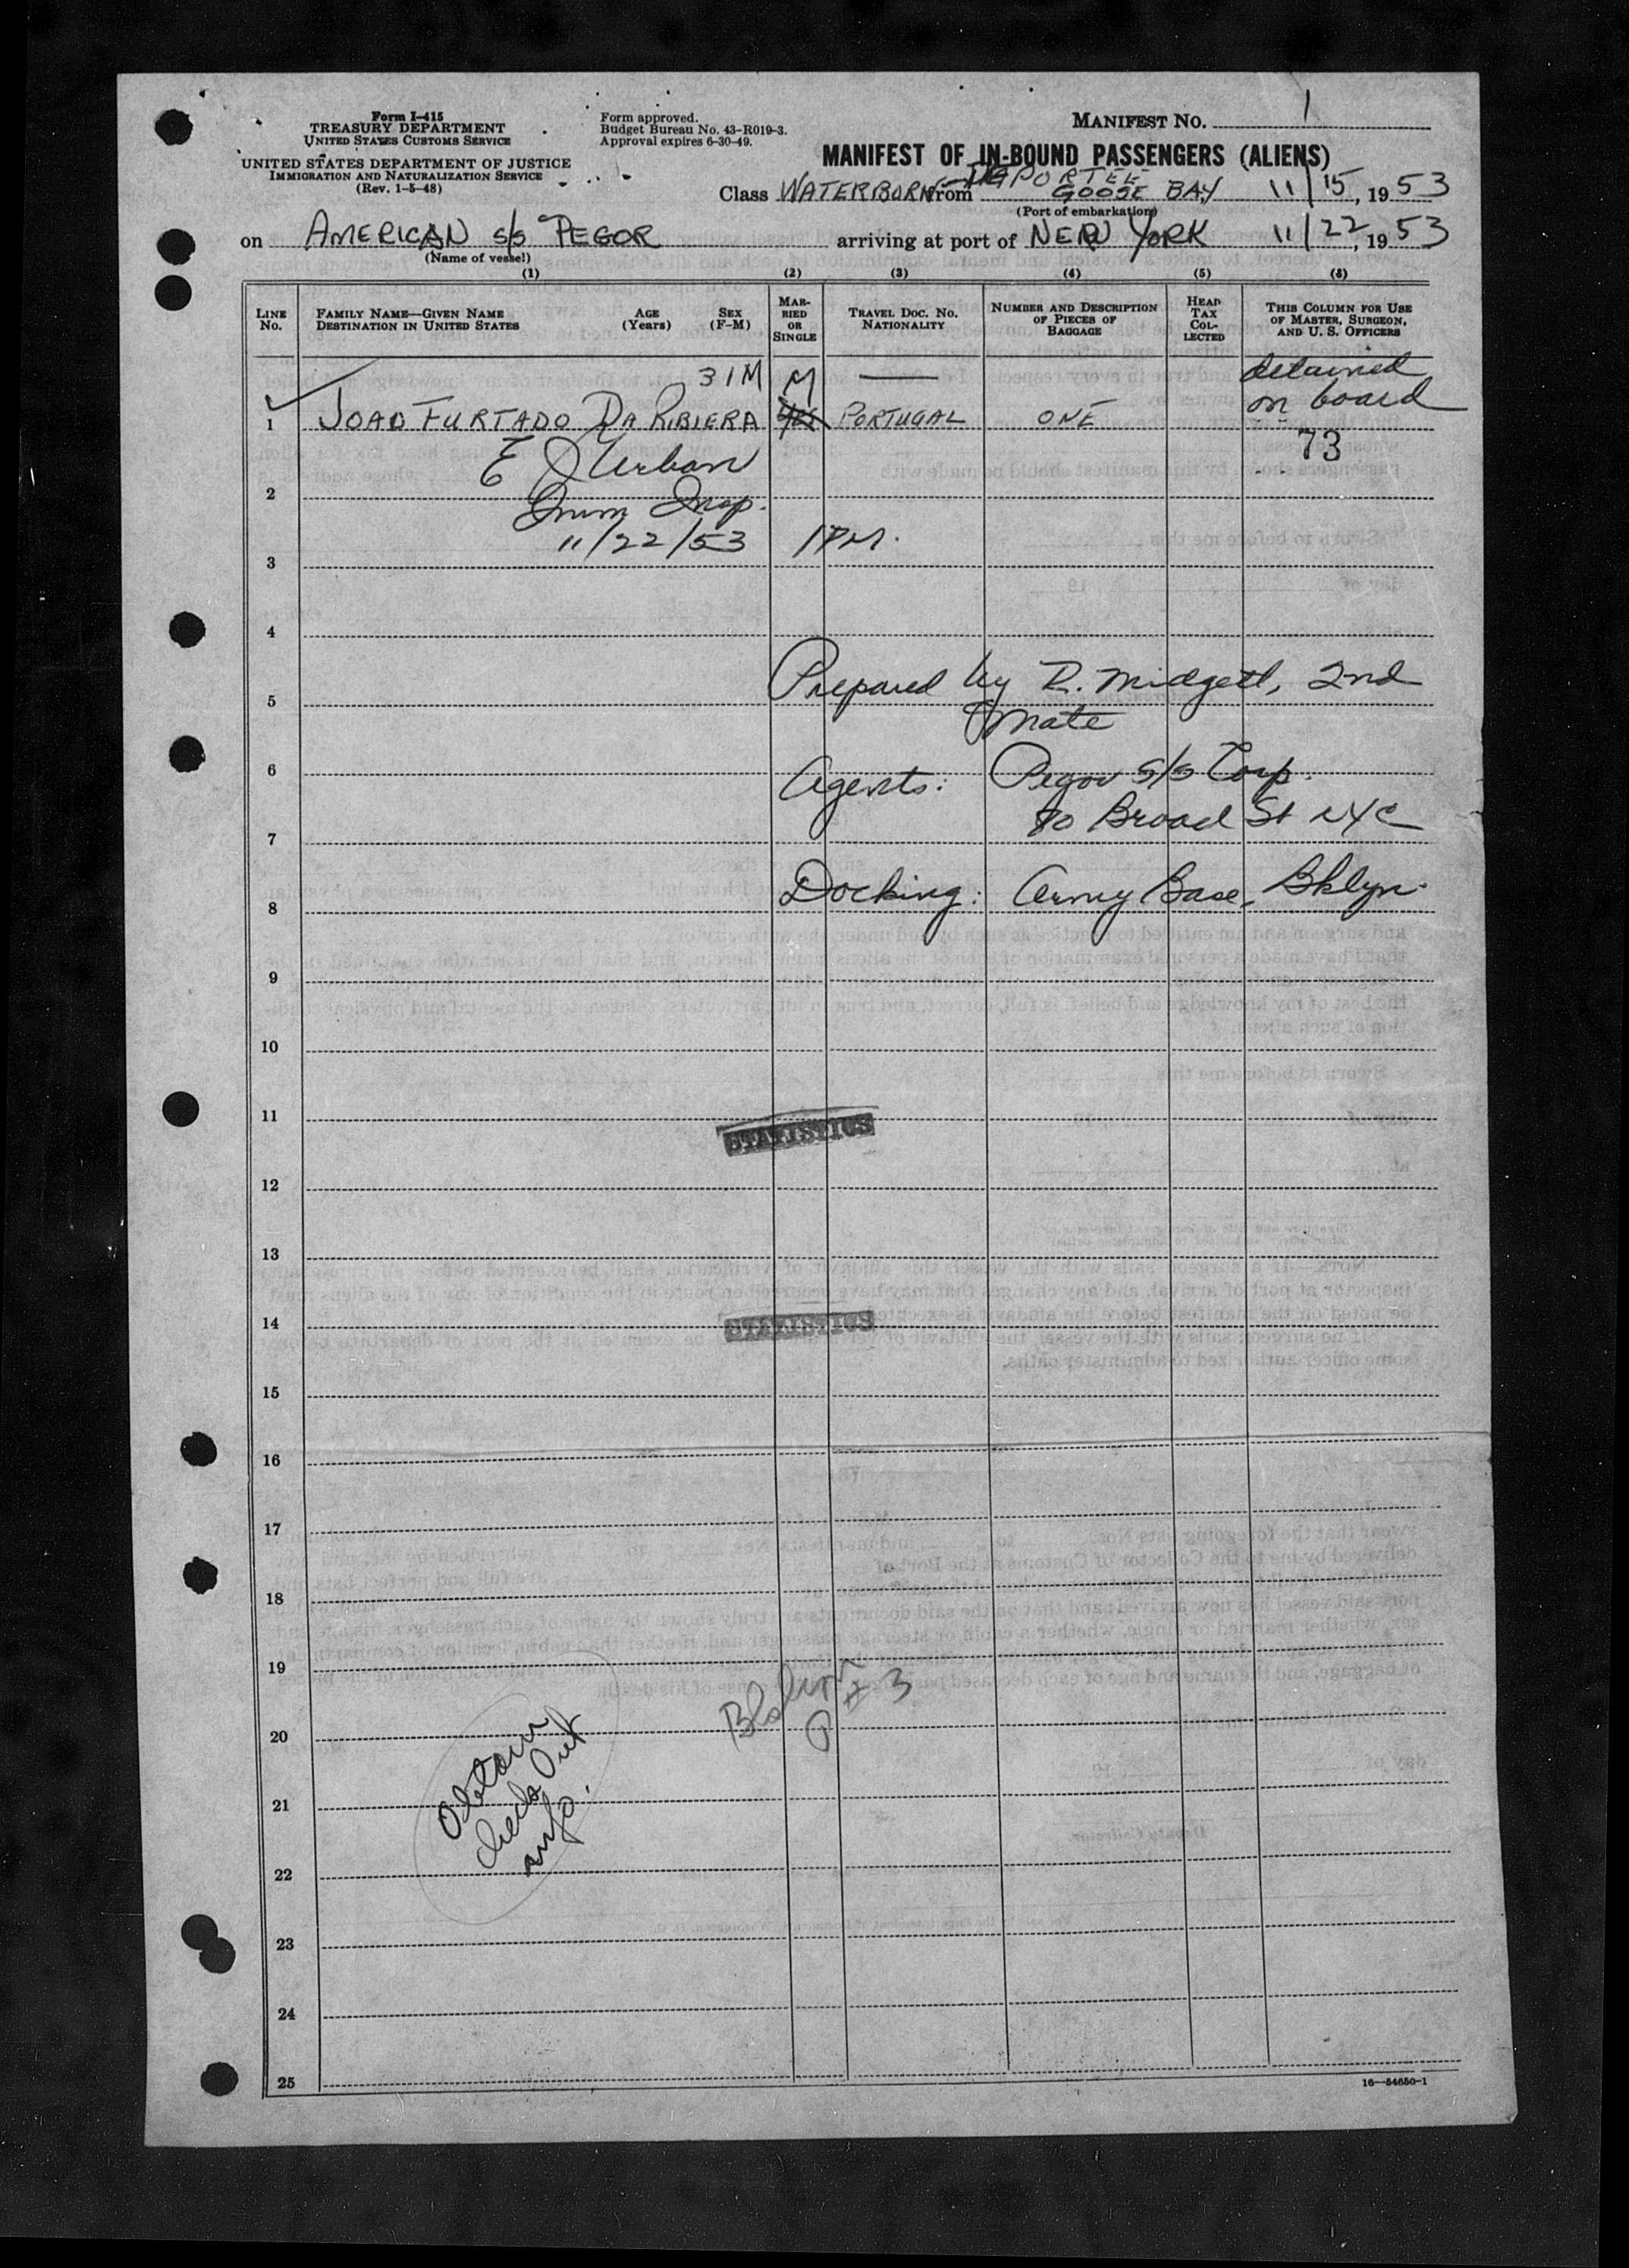 Form I-415
TREASURY DEPARTMENT
UNITED STATES CUSTOMS SERVICE
UNITED STATES DEPARTMENT OF JUSTICE
IMMIGRATION AND NATURALIZATION SERVICE
(Rev. 1-5-48)
Form approved.
Budget Bureau No. 43-R019-3.
Approval expires 6-30-49.
MANIFEST NO. 1
MANIFEST OF IN-BOUND PASSENGERS (ALIENS)
DEPORTEE
Class WATERBORNE from GOOSE BAY 11/15, 1953
(Port of embarkation)
on AMERICAN S/S PEGOR arriving at port of NEW YORK 11/22, 1953
(Name of vessel)
(1) (2) (3) (4) (5) (6)
LINE No.
FAMILY NAME—GIVEN NAME
DESTINATION IN UNITED STATES
AGE (Years)
SEX (F-M)
MARRIED OR SINGLE
TRAVEL DOC. NO.
NATIONALITY
NUMBER AND DESCRIPTION OF PIECES OF BAGGAGE
HEAD TAX COLLECTED
THIS COLUMN FOR USE OF MASTER, SURGEON, AND U. S. OFFICERS
31 M M — detained
1 JOAO FURTADO DA RIBIERA PORTUGAL ONE on board
73
E J Urban
2
Imm Insp.
11/22/53 1 PM.
3
4
Prepared by R. Midgett, 2nd
5
Mate
6
Agents: Pegor S/S Corp.
80 Broad St NYC
7
Docking: Army Base, Bklyn.
8
9
10
11
STATISTICS
12
13
14
STATISTICS
15
16
17
18
19
Bklyn
P # 3
20
Obtain
check Out
info.
21
22
23
24
25
16—54650-1